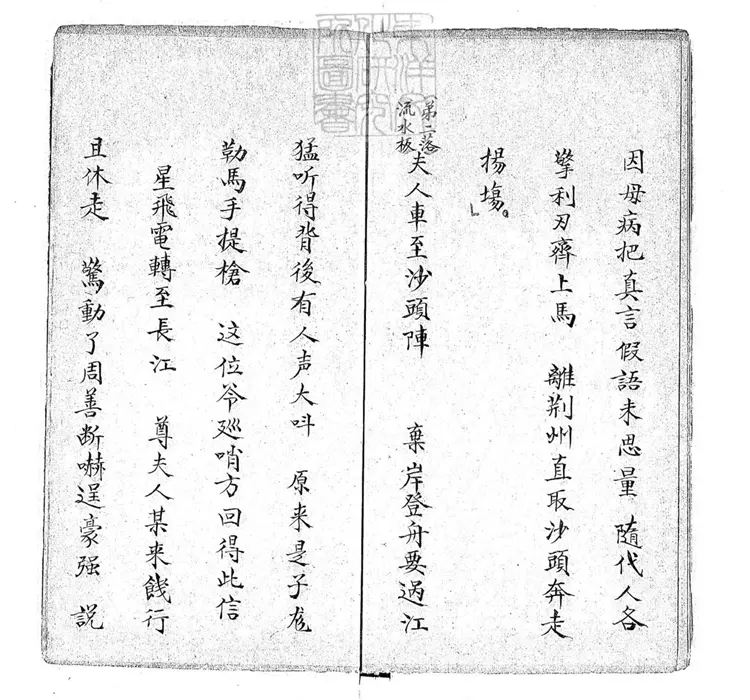 東洋文
化研究
所圖書
因母病把真言假語未思量 隨代人各
擎利刃齊上馬 離荆州直取沙頭奔走
揚塲。」
第二落
流水板
夫人車至沙頭陣 棄岸登舟要过江
猛听得背後有人声大呌 原来是子龙
勒馬手提槍 这位爷廵哨方回得此信
星飛電轉至長江 尊夫人某来餞行
且休走 驚動了周善断嚇逞豪强 説